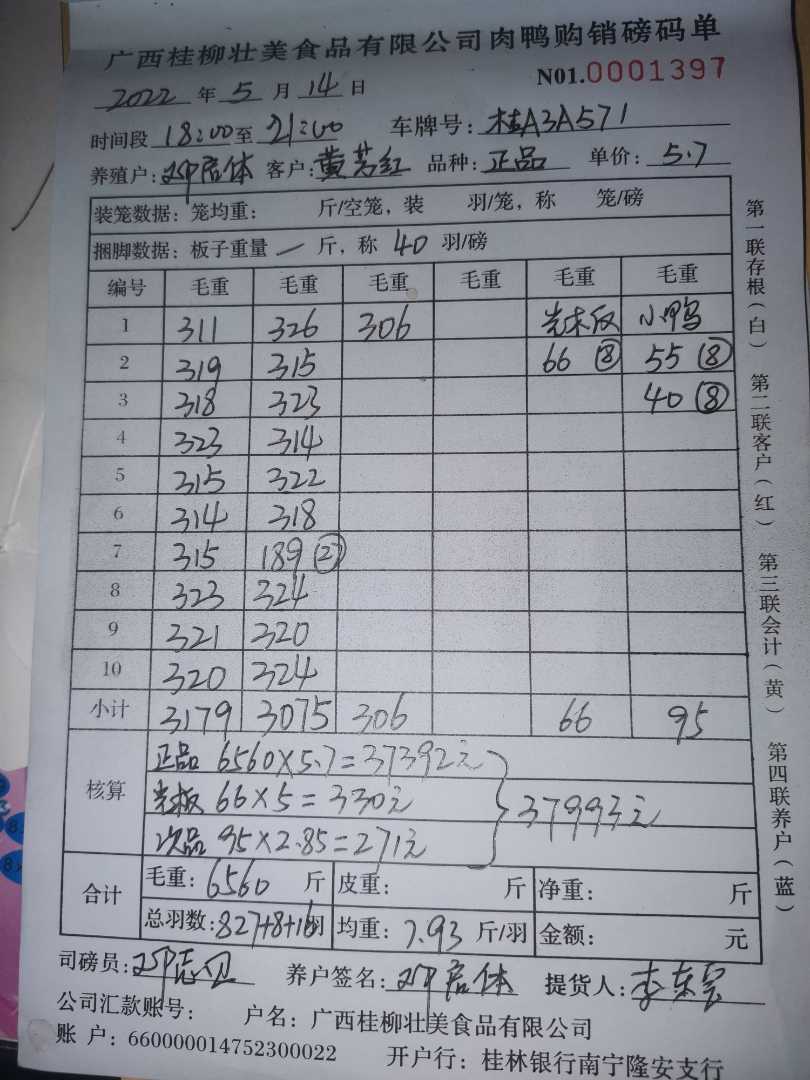 广西桂柳壮美食品有限公司肉鸭购销磅码单
2022 年 5 月 14 日 N01.0001397
时间段 18:00 至 21:00 车牌号: 桂A3A571
养殖户: 邓启体 客户: 黄芳红 品种: 正品 单价: 5.7
装笼数据: 笼均重: 斤/空笼, 装 羽/笼, 称 笼/磅
捆脚数据: 板子重量 一 斤, 称 40 羽/磅
编号 毛重 毛重 毛重 毛重 毛重 毛重
1 311 326 306 光木板 小鸭
2 319 315 66 ⑧ 55 ⑧
3 318 323 40 ⑧
4 323 314
5 315 322
6 314 318
7 315 189 (27)
8 323 324
9 321 320
10 320 324
小计 3179 3075 306 66 95
核算
正品 6560×5.7=37392元
光板 66×5=330元
次品 95×2.85=271元
37993元
合计 毛重: 6560 斤 皮重: 斤 净重: 斤
总羽数: 827+8+16羽 均重: 7.93 斤/羽 金额: 元
司磅员: 邓志 养户签名: 邓启体 提货人: 李东
公司汇款账号: 户名: 广西桂柳壮美食品有限公司
账 户: 660000014752300022 开户行: 桂林银行南宁隆安支行
第一联存根(白) 第二联客户(红) 第三联会计(黄) 第四联养户(蓝)